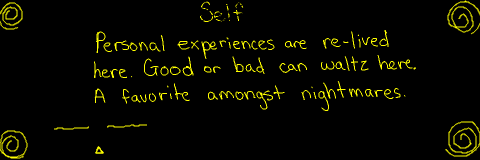 Self
Personal experiences are re-lived
here. Good or bad can waltz here.
A favorite amongst nightmares.